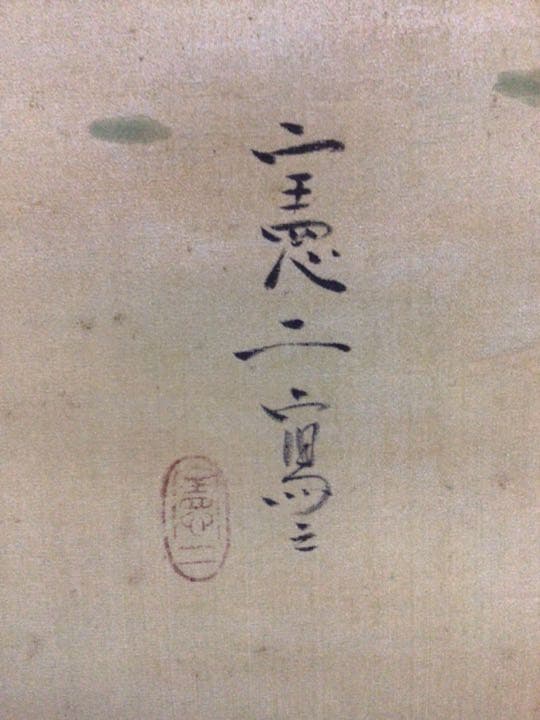 憲二寫之
憲二